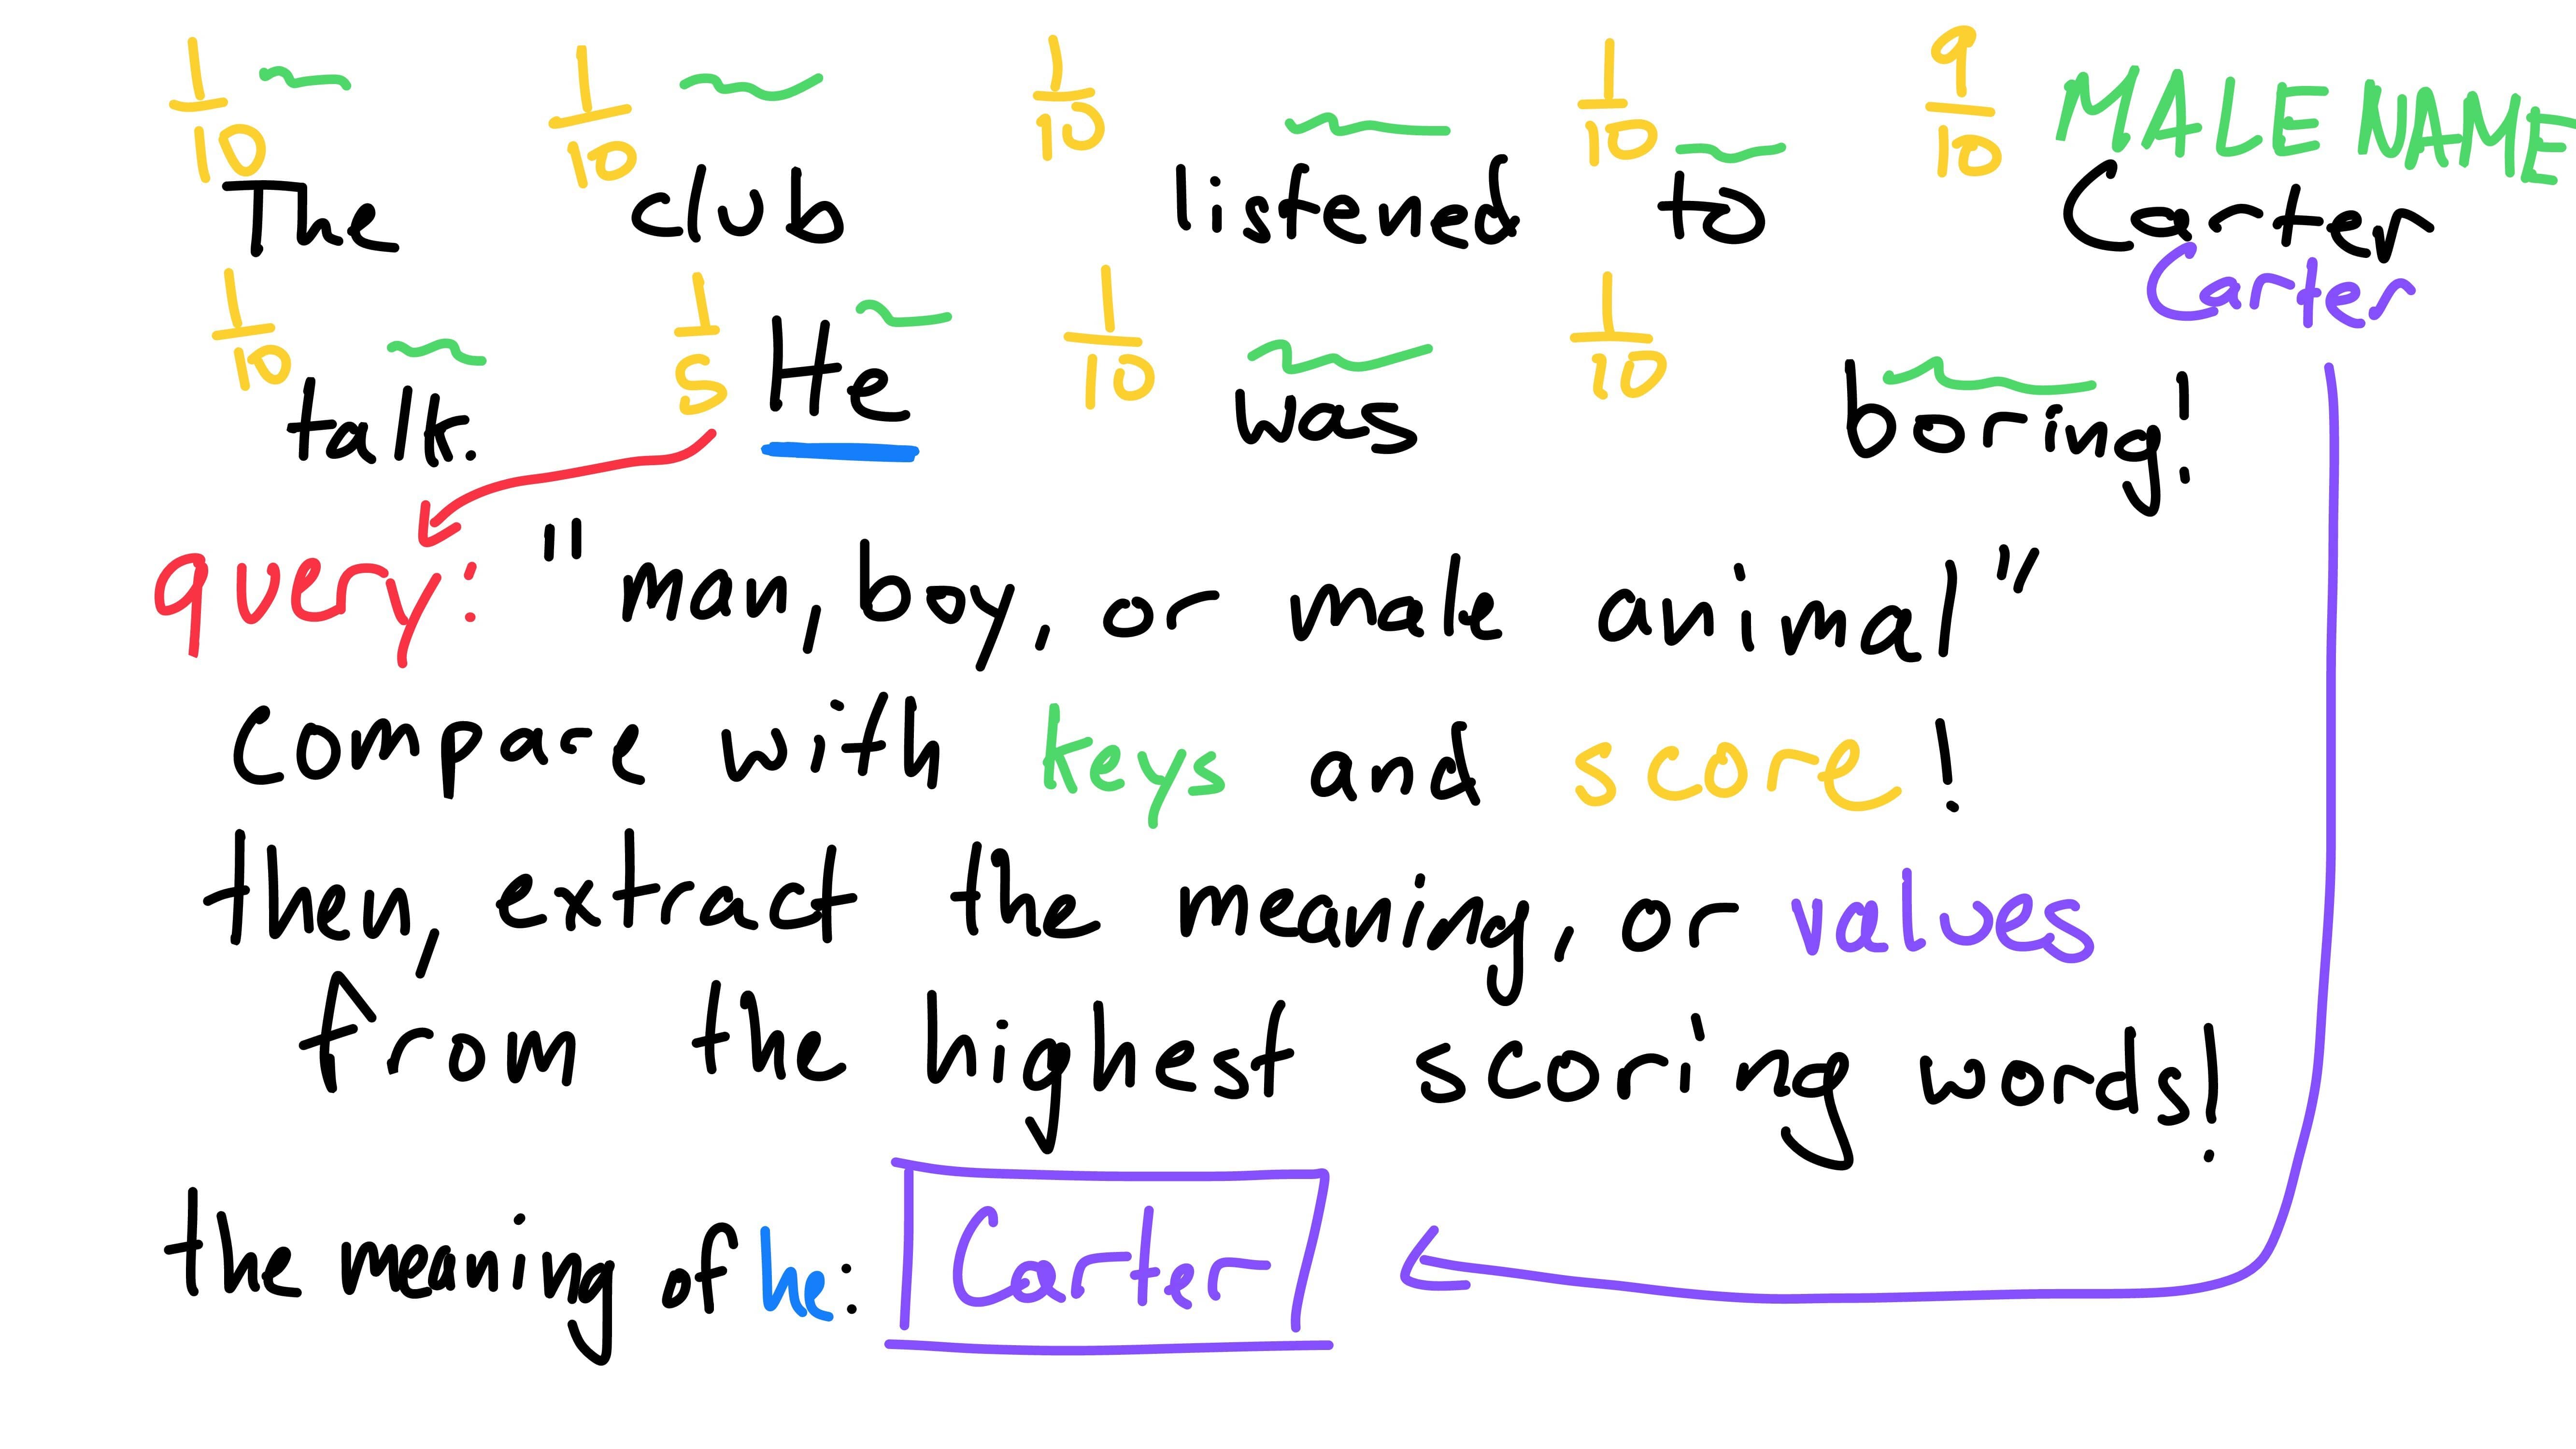 1/10 1/10 1/10 1/10 9/10 MALE NAME
The club listened to Carter
Carter
1/10 1/5 1/10 1/10
talk. He was boring!
query: "man, boy, or male animal"
Compare with keys and score!
then, extract the meaning, or values
from the highest scoring words!
the meaning of he: Carter